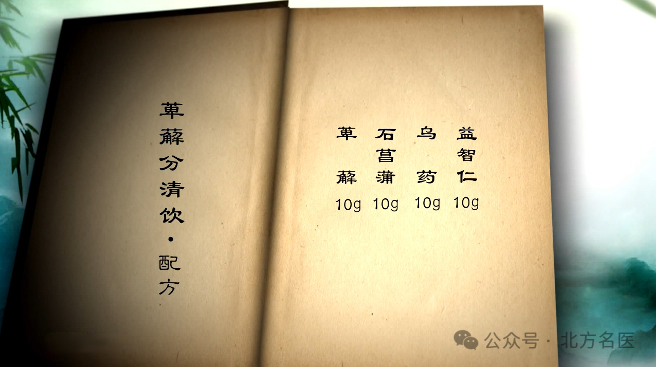 萆薢分清饮·配方
益智仁 10g
乌药 10g
石菖蒲 10g
萆薢 10g
公众号·北方名医